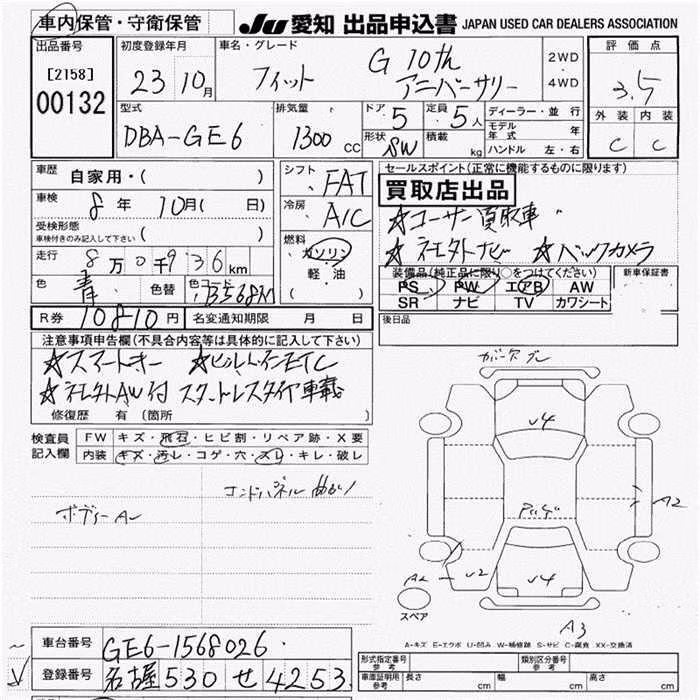 車内保管・守衛保管 JU 愛知 出品申込書 JAPAN USED CAR DEALERS ASSOCIATION
出品番号 [2158] 00132
初度登録年月 23 10月
車名・グレード フィット G 10th アニバーサリー
2WD ・ 4WD
評価点 3.5
外装 C 内装 C
型式 DBA-GE6
排気量 1300 CC
ドア 5 定員 5人
形状 SW 積載 kg
ディーラー・並行
モデル年式 年
ハンドル 左・右
車歴 自家用・( )
車検 8年 10月( 日)
受検形態
車検付きのみ記入して下さい ( )
走行 8万0千936km
色 青 色替 色コード B568M
R券 10810円 名変通知期限 月 日
シフト FAT
冷房 A/C
燃料 ガソリン
軽・油
( )
セールスポイント(正常に機能するものに限ります)
買取店出品
☆ユーザー買取車
☆社外ナビ ☆バックカメラ
装備品(純正品に限り○をつけてください) 新車保証書
PS PW エアB AW
SR ナビ TV カワシート
後日品
注意事項申告欄(不具合内容等は具体的に記入して下さい)
☆スマートキー ☆ビルトインETC
☆社外AW付スタットレスタイヤ車載
修復歴 有 (箇所 )
検査員記入欄
FW キズ・飛石・ヒビ割・リペア跡・X要
内装 キズ・汚レ・コゲ・穴・スレ・キレ・破レ
コンドパネル曲がり
ボディーA
√4
A2
A2 √2
√4
スペア
A3
A-キズ E-エクボ U-凹み W-補修跡 S-サビ C-腐食 XX-交換済
車台番号 GE6-1568026
登録番号 名古屋 530 せ 4253
形式指定番号 参考 類別区分番号 参考
車庫証明用 参考 長さ cm 幅 cm 高さ cm